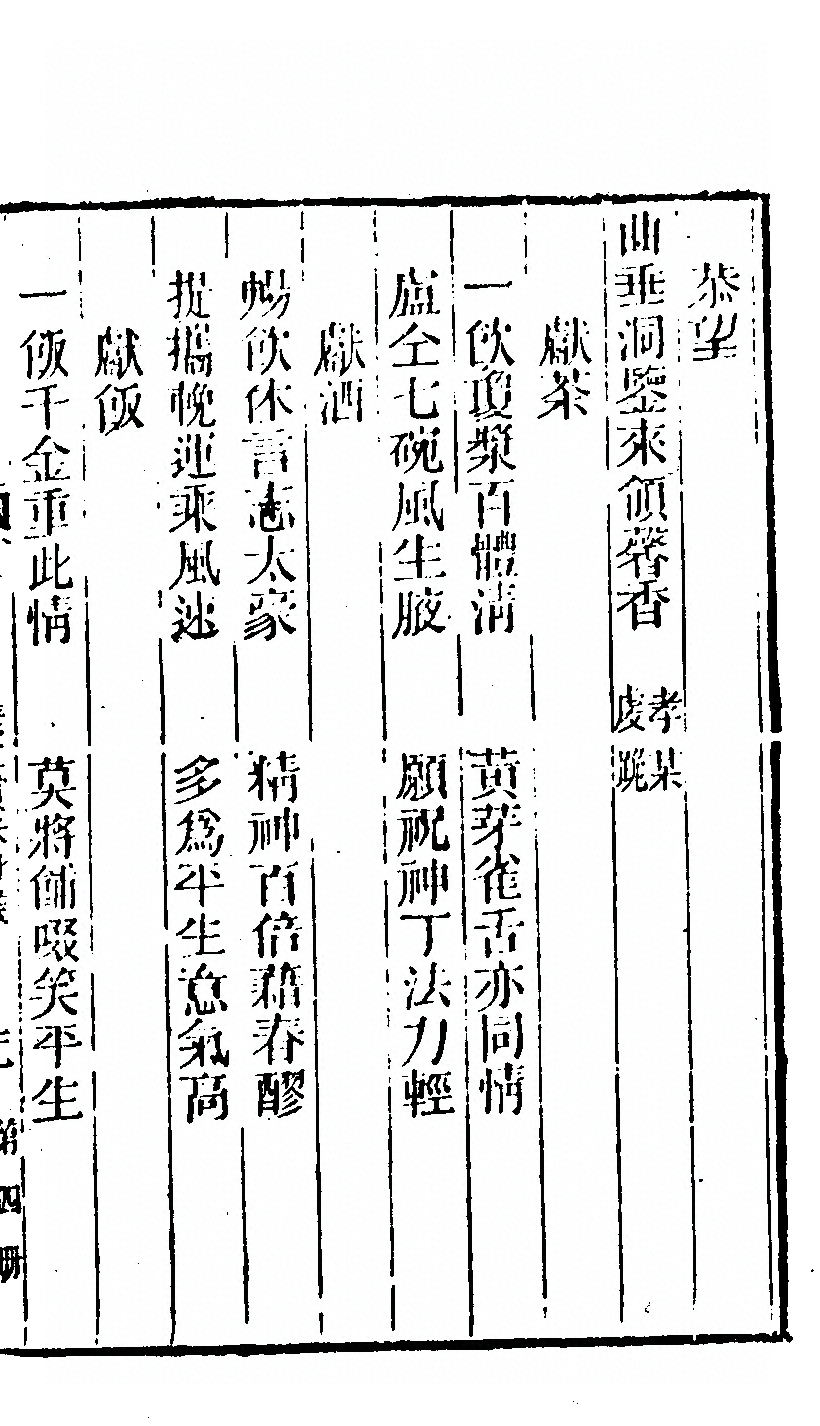 恭望
曲垂洞鑒來領馨香 孝某虔跪
獻茶
一飲瓊漿百體淸 黃芽雀舌亦同情
盧仝七碗風生腋 願祝神丁法力輕
獻酒
暢飲休言志太豪 精神百倍藉春醪
提攜晚運乘風送 多爲平生意氣高
獻飯
一飯千金重此情 莫將餔啜笑平生
第四册